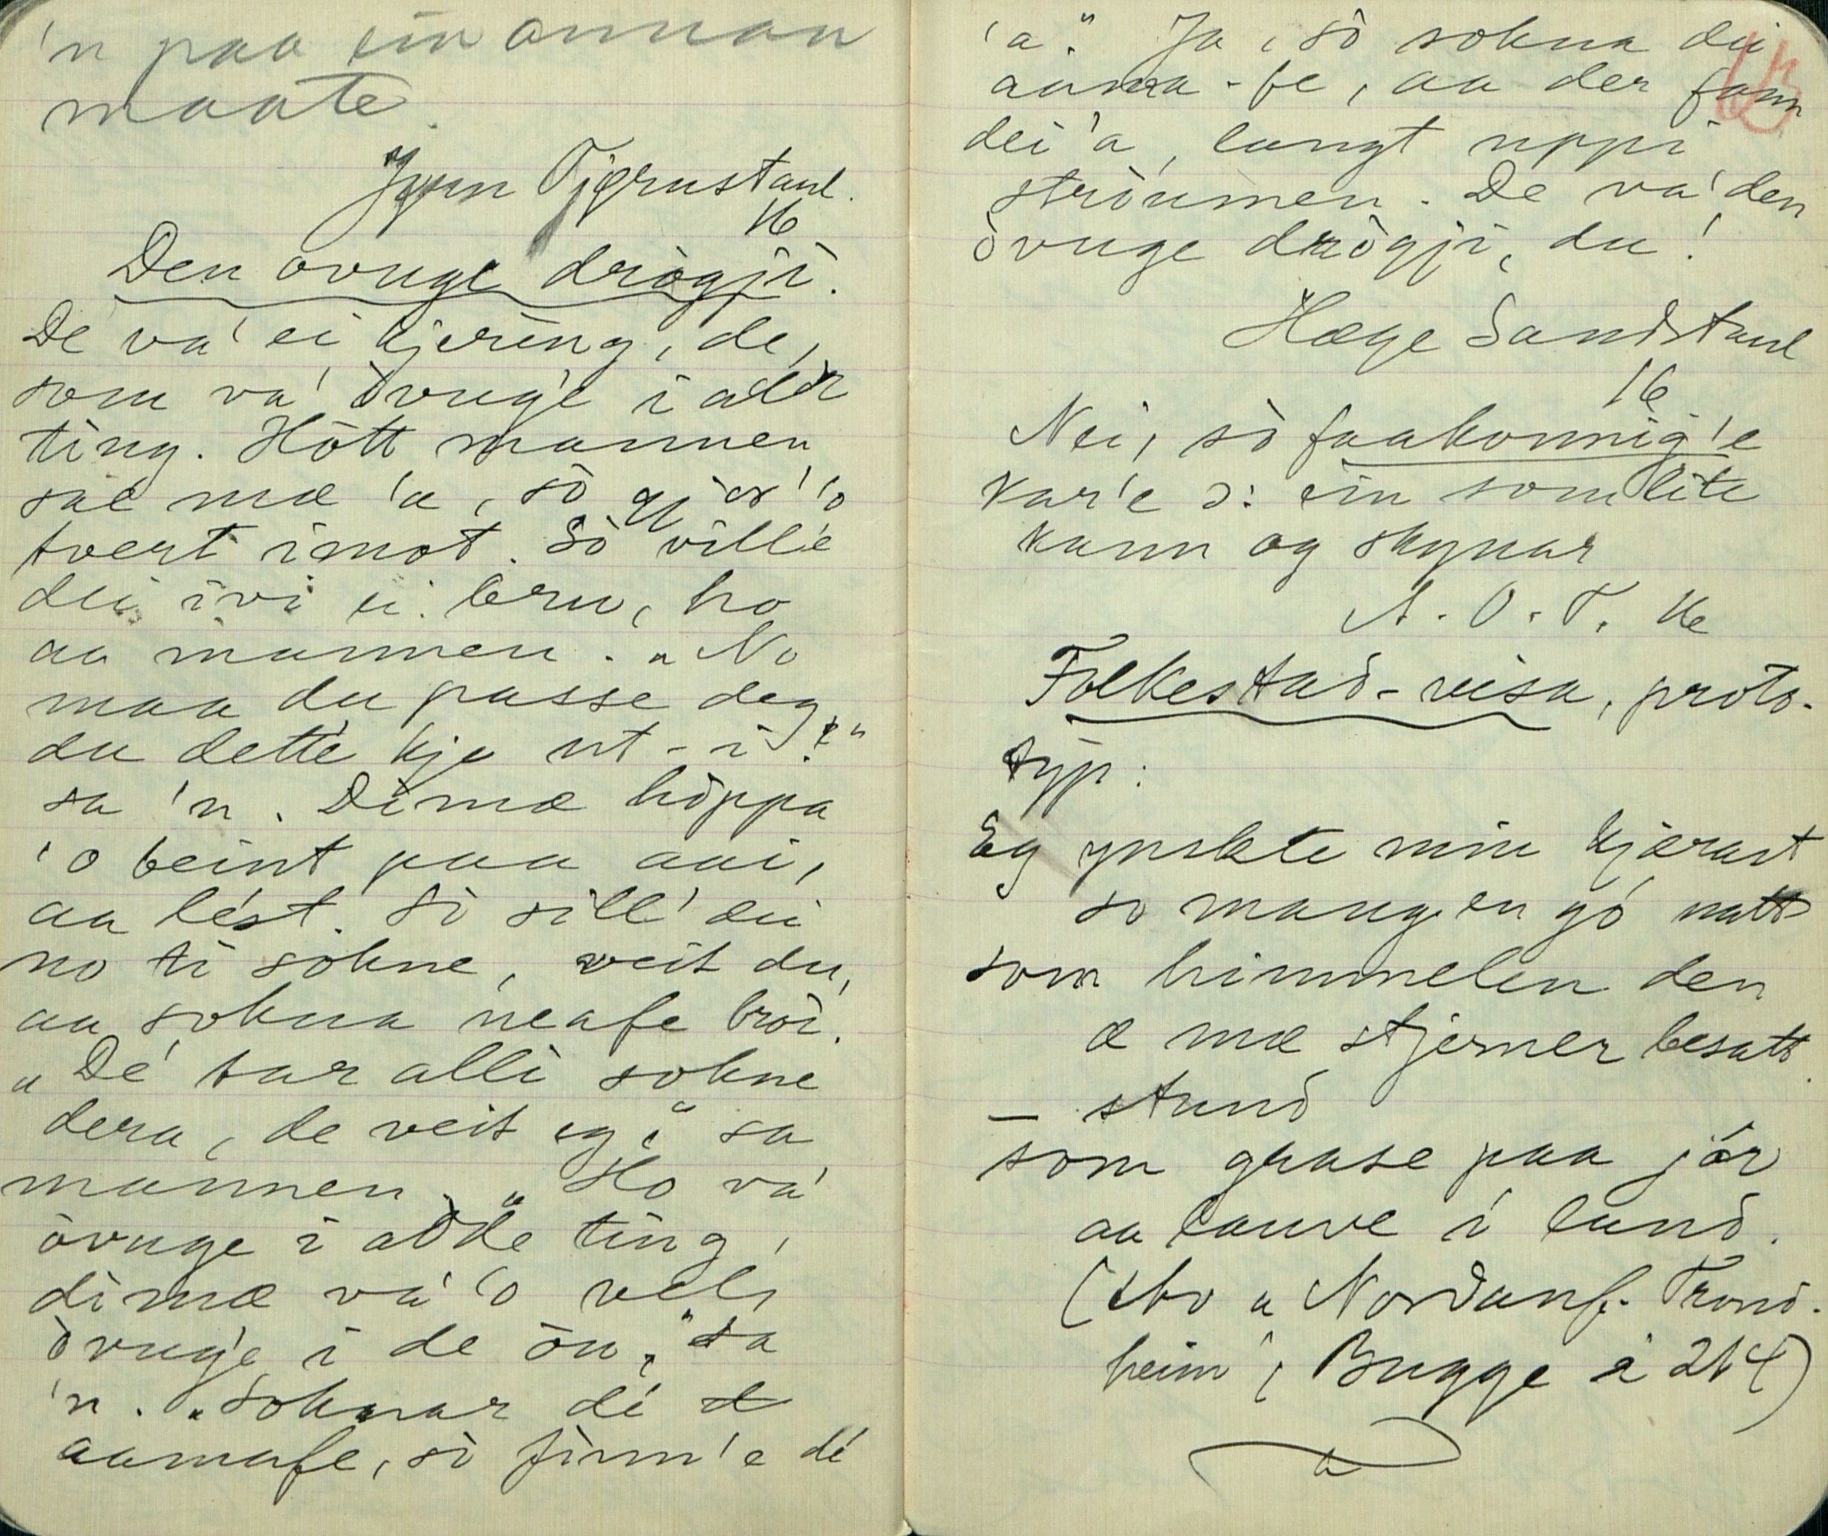 'n paa ein annan
maate.
Jynn Tjønnstaul.
16
Den òvuge drògji.
De va' ei kjering, de,
som va' òvug'e i adde
ting. Hòtt mannen
sae mæ 'a, sò gjor' 'o
tvert imot. Sò vill'e
dei ivi ei bru, ho
aa mannen. „No
maa du passe deg
du dette kje ut-i!"
sa 'n. Dimæ hòppa
'o beint paa aai,
aa lést. Sò sill' dei
no ti sokne, veit du,
aa sokna neafe bròi.
„De tar alli sokne
dera, de veit eg," sa
mannen. „Ho va'
òvuge i adde ting,
dimæ va' 'o vel
òvug'e i de òu," sa
'n. „Soknar dé
aamafe, sò finn'e dé
'a." Ja, sò sokna dei
aama-fe, aa der fann
dei 'a, langt uppi
stròumen. De va' den
òvuge drògji, du!
Hæge Sandstaul
16
Nei, sò faakonnig'e
kar'e ɔ: ein som lite
kann og skynar
A. O. T. 16
Folkestad-visa, proto-
typ:
Eg ynskte min kjærast
so mangen gó natt
som himmelen den
æ mæ stjerner besatt.
— stund
som grase paa jór
aa lauve i lund.
( "Nordanf. Trond-
heim", Bugge s 214)